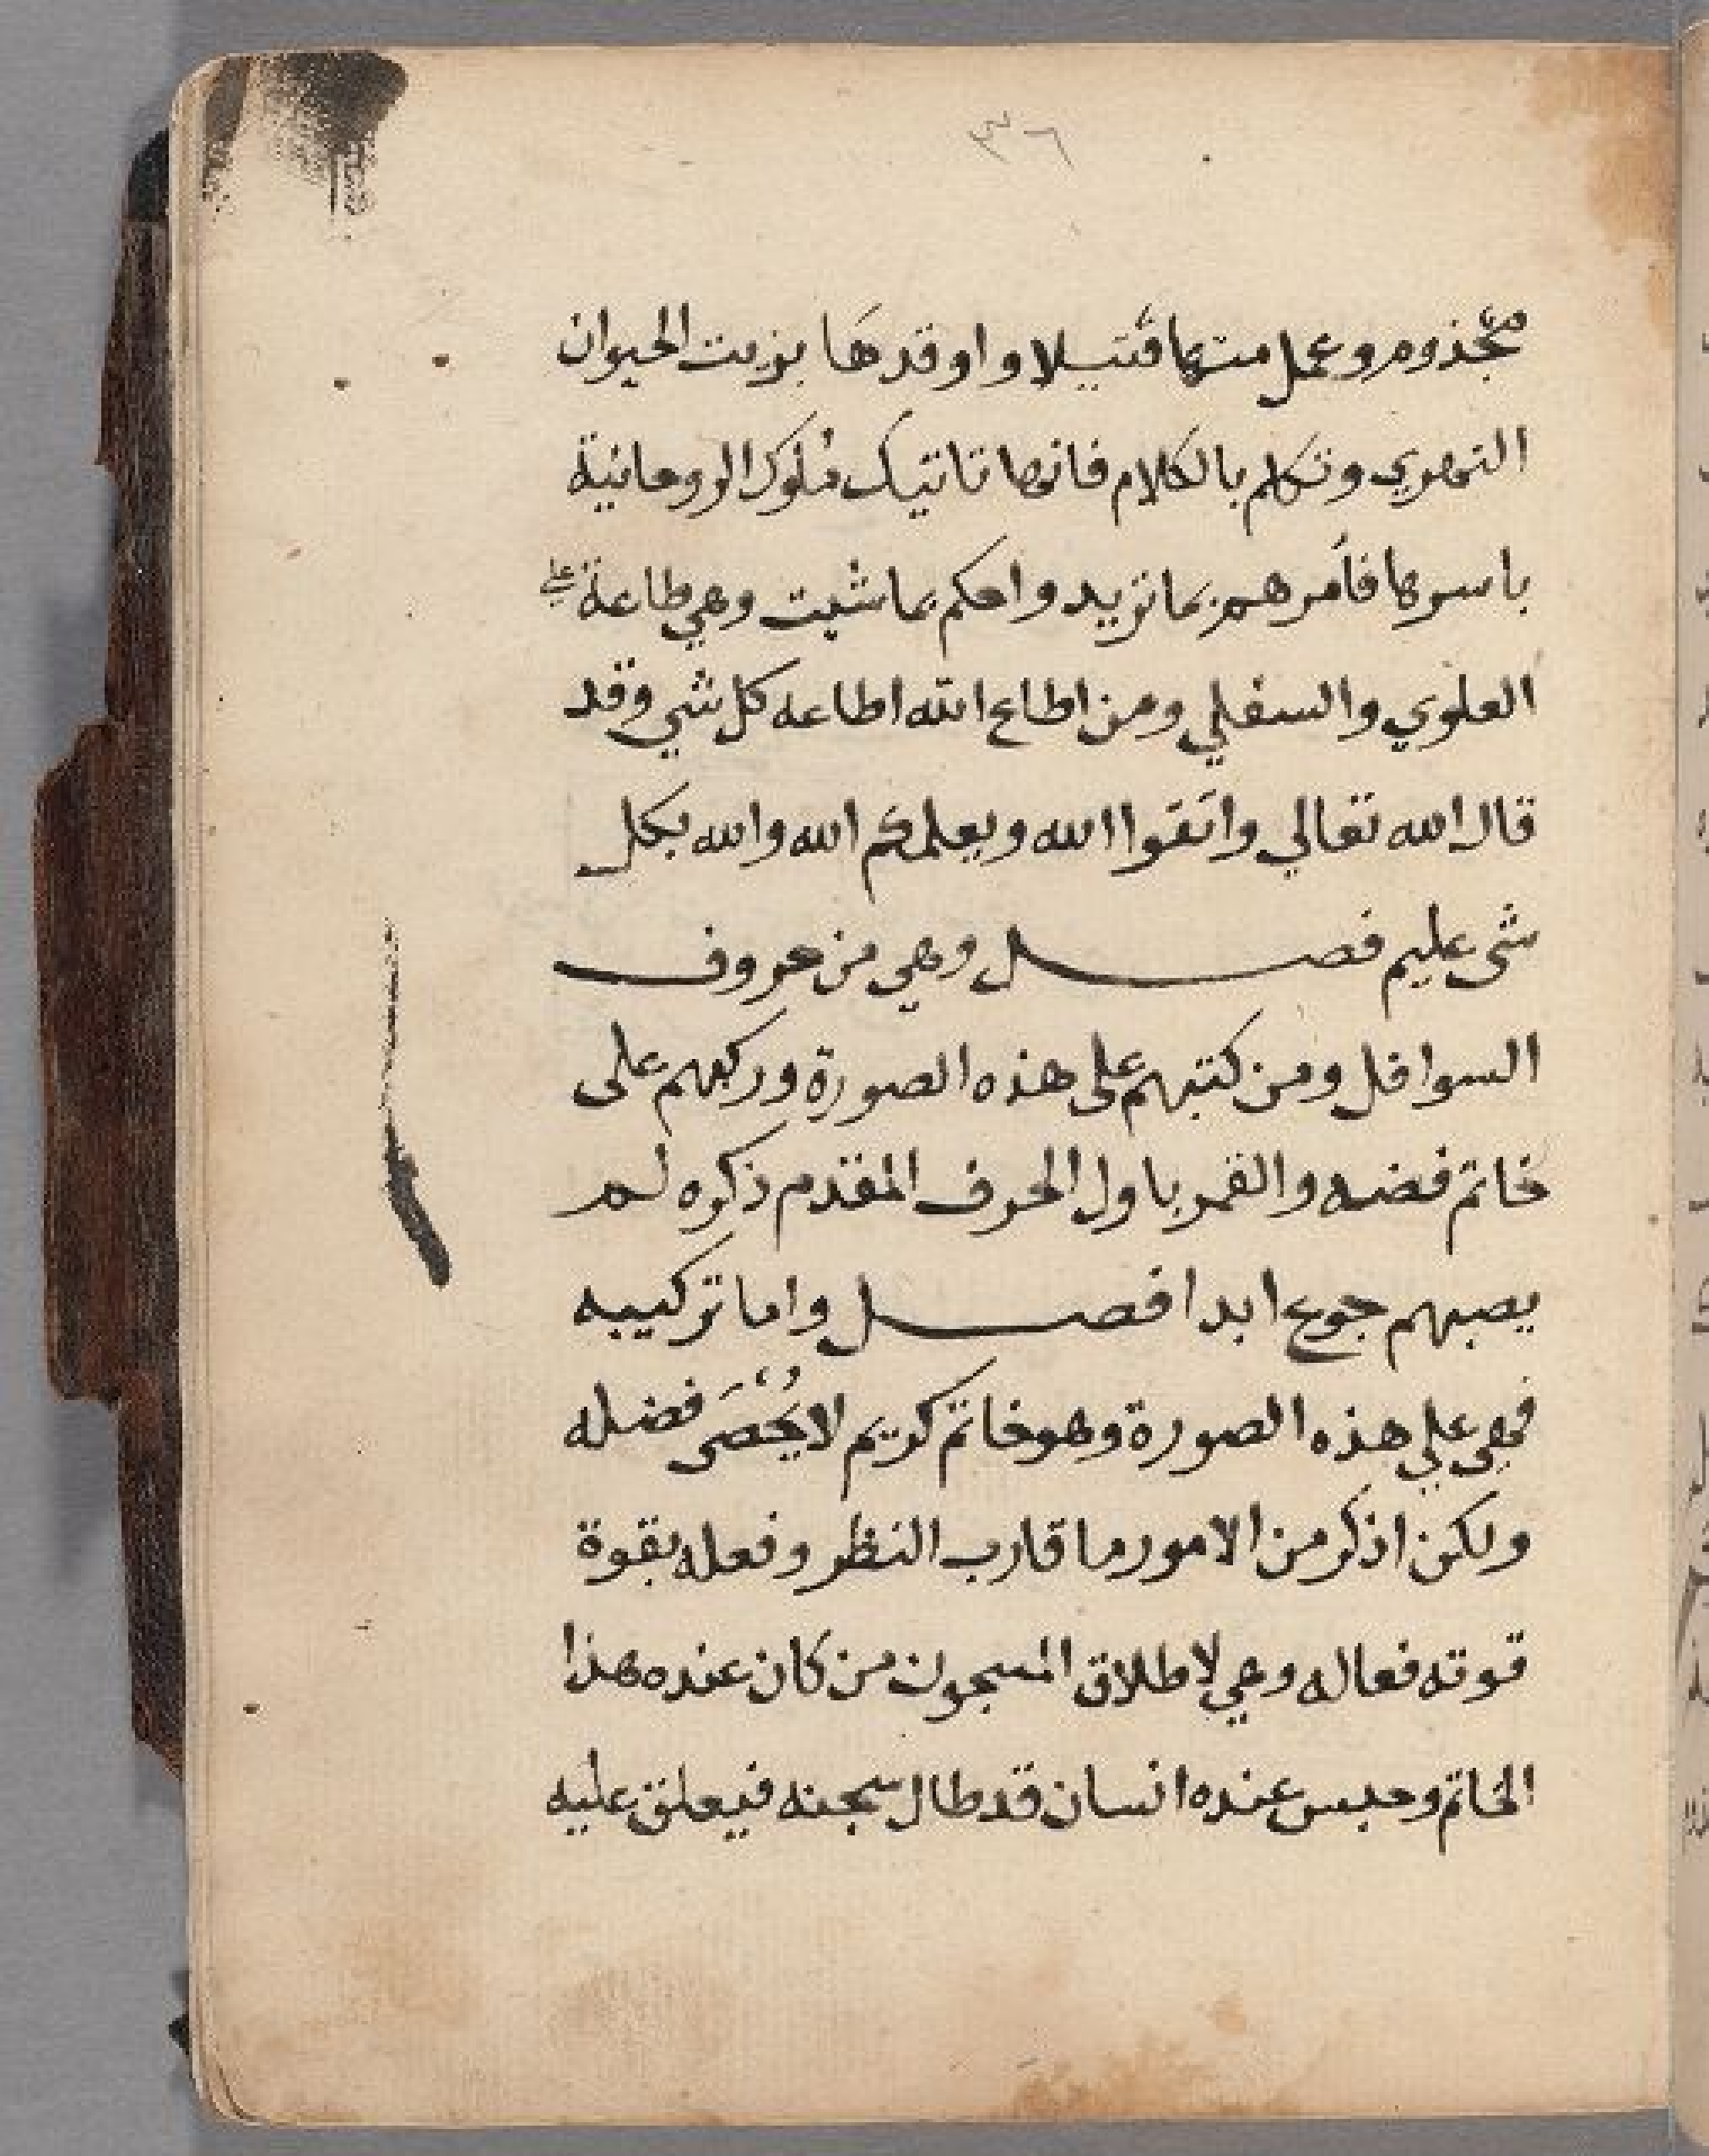 ٣٦
مجذوم وعمل منها فتيلا واوقدها بزيت الحيوان
النهري وتكلم بالكلام فانها تاتيك ملوك الروحانية
باسرها فأمرهم بما تريد واحكم بما شيت وهي طاعة على
العلوي والسفلي ومن اطاع الله اطاعه كل شي وقد
قال الله تعالي واتقوا الله ويعلمكم الله والله بكل
شى عليم فصل وهي من حروف
السوافل ومن كتبهم على هذه الصورة وركبهم على
خاتم فضه والقمر باول الحرف المقدم ذكره لم
يصبهم جوع ابدا فصل واما تركيبه
فهي علي هذه الصورة وهو خاتم كريم لا يُحْصَى فضله
ولكن اذكر من الامور ما قارب النظر وفعله بقوة
قوته فعاله وهي لاطلاق المسجون من كان عنده هذا
الخاتم وحبس عنده انسان قد طال سجنه فيعلق عليه